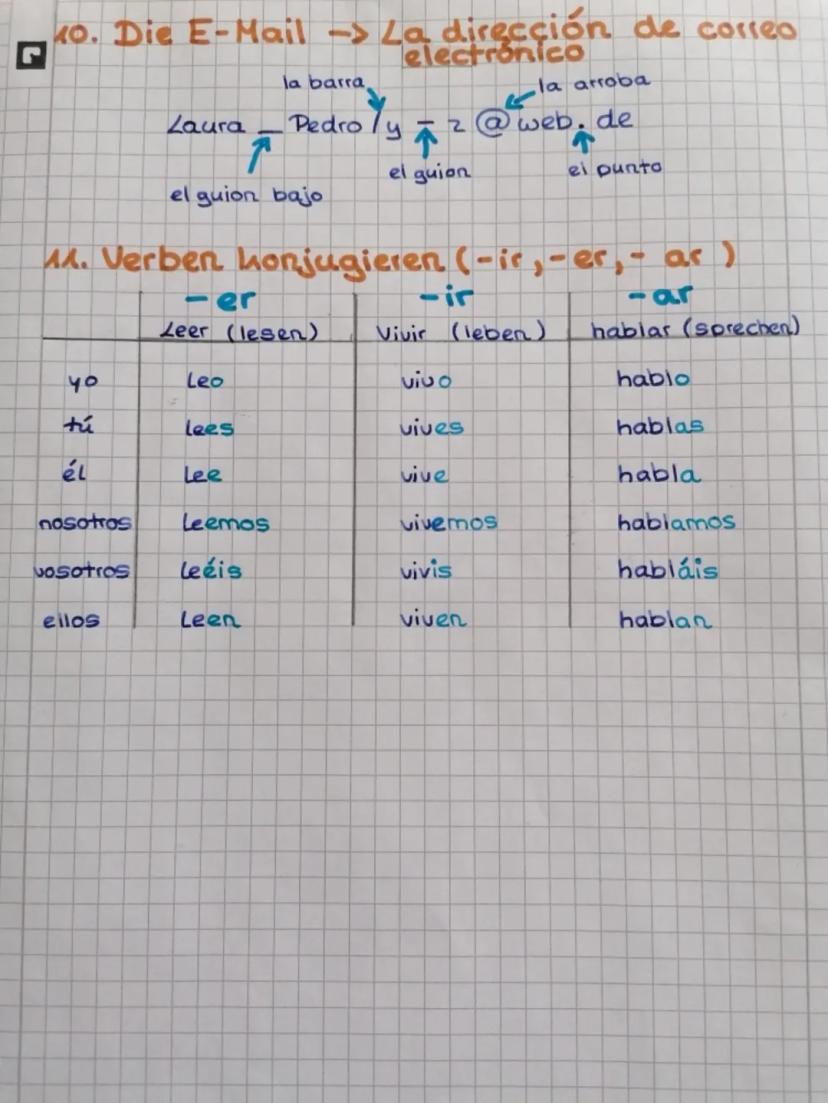 10. Die E-Mail -> La dirección de correo
electrónico
la barra la arroba
Laura _ Pedro / y - z @ web . de
el guion el punto
el guion bajo
11. Verben konjugieren (-ir, -er, - ar )
-er -ir -ar
Leer (lesen) Vivir (leben) hablar (sprechen)
yo Leo vivo hablo
tú Lees vives hablas
él Lee vive habla
nosotros Leemos vivemos hablamos
vosotros Leéis vivis habláis
ellos Leen viven hablan